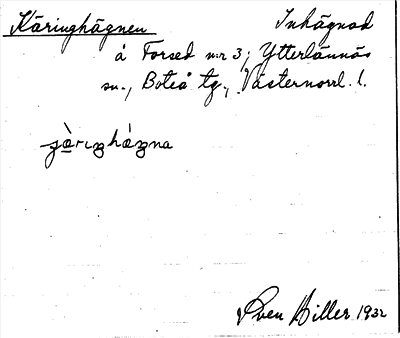 Käringhägnen Inhägnad
å Forsed nr 3; Ytterlännäs
sn., Boteå tg., Västernorrl. l.
Sven Hiller 1932